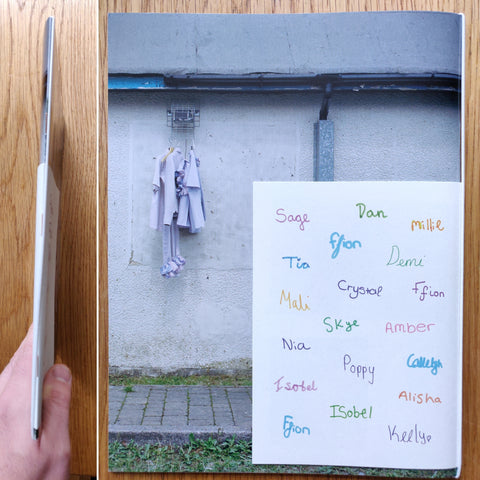 Sage
Dan
Millie
Ffion
Tia
Demi
Crystal
Ffion
Mali
Skye
Amber
Nia
Poppy
Isobel
Alisha
Ffion
ISobel
Kelly